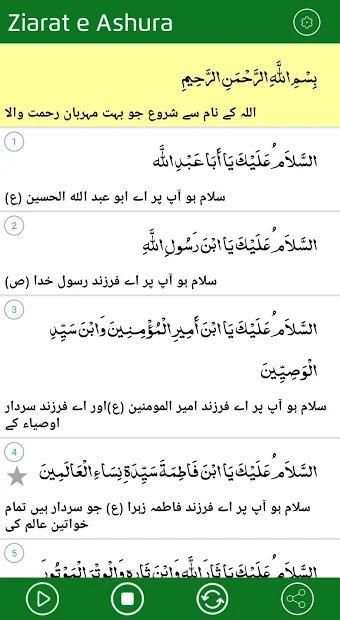 Ziarat e Ashura
بِسْمِ اللَّهِ الرَّحْمَنِ الرَّحِيمِ
اللہ کے نام سے شروع جو بہت مہربان رحمت والا
1
السَّلَامُ عَلَيْكَ يَا أَبَا عَبْدِ اللَّهِ
سلام ہو آپ پر اے ابو عبد الله الحسين (ع)
2
السَّلَامُ عَلَيْكَ يَا ابْنَ رَسُولِ اللَّهِ
سلام ہو آپ پر اے فرزند رسول خدا (ص)
3
السَّلَامُ عَلَيْكَ يَا ابْنَ أَمِيرِ الْمُؤْمِنِينَ وَابْنَ سَيِّدِ
الْوَصِيِّينَ
سلام ہو آپ پر اے فرزند امیر المومنین (ع)اور اے فرزند سردار
اوصیاء کے
4
السَّلَامُ عَلَيْكَ يَا ابْنَ فَاطِمَةَ سَيِّدَةِ نِسَاءِ الْعَالَمِينَ
سلام ہو آپ پر اے فرزند فاطمہ زہرا (ع) جو سردار ہیں تمام
خواتین عالم کی
5
السَّلَامُ عَلَيْكَ يَا ثَارَ اللَّهِ وَابْنَ ثَارِهِ وَالْوِتْرَ الْمَوْتُورَ